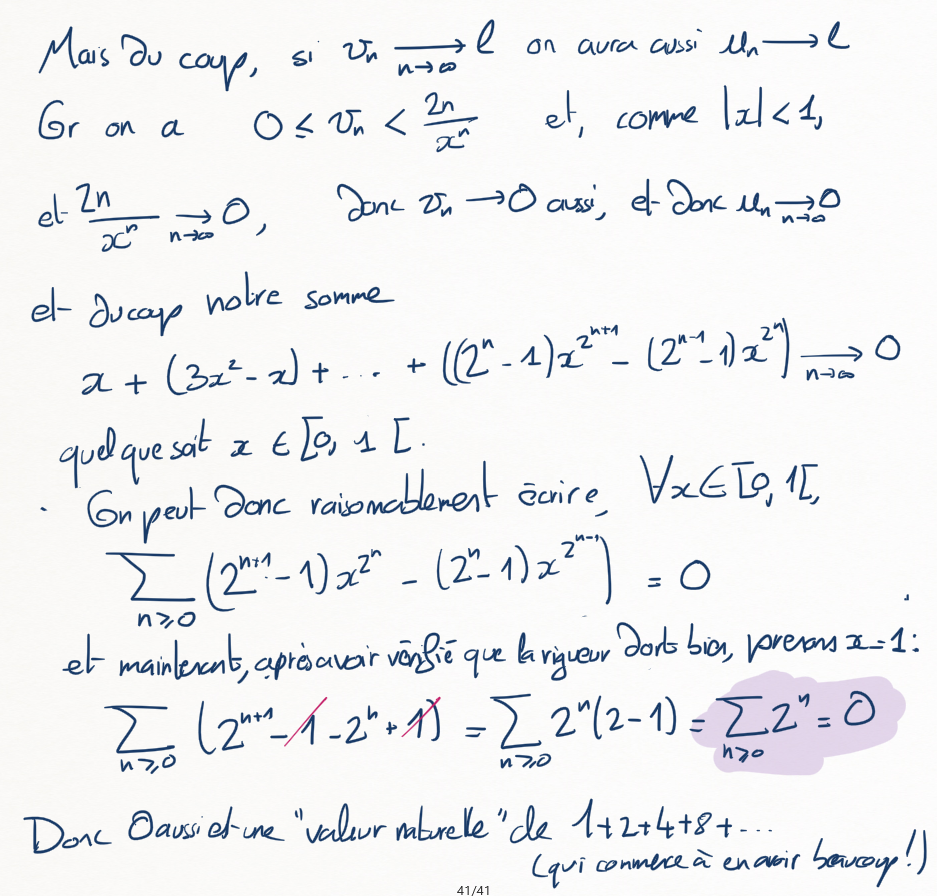 Mais du coup, si vₙ ⟶ l on aura aussi uₙ ⟶ l
n→∞
Or on a 0 ≤ vₙ < 2n/xⁿ et, comme |x| < 1,
et 2n/xⁿ ⟶ 0, donc vₙ → 0 aussi, et donc uₙ ⟶ 0
n→∞ n→∞
et du coup notre somme
x + (3x² - x) + ... + ((2^n - 1)x^{2^{n+1}} - (2^{n-1} - 1)x^{2^n}) ⟶ 0
n→∞
quel que soit x ∈ [0, 1[.
· On peut donc raisonablement écrire, ∀x ∈ [0, 1[,
∑_{n≥0} (2^{n+1} - 1)x^{2^n} - (2^n - 1)x^{2^{n-1}}) = 0
et maintenant, après avoir vérifié que la rigueur dort bien, prenons x = 1 :
∑_{n≥0} (2^{n+1} - 1 - 2^n + 1) = ∑_{n≥0} 2^n(2 - 1) = ∑_{n≥0} 2^n = 0
Donc 0 aussi est une "valeur naturelle" de 1+2+4+8+...
(qui commence à en avoir beaucoup !)
41/41